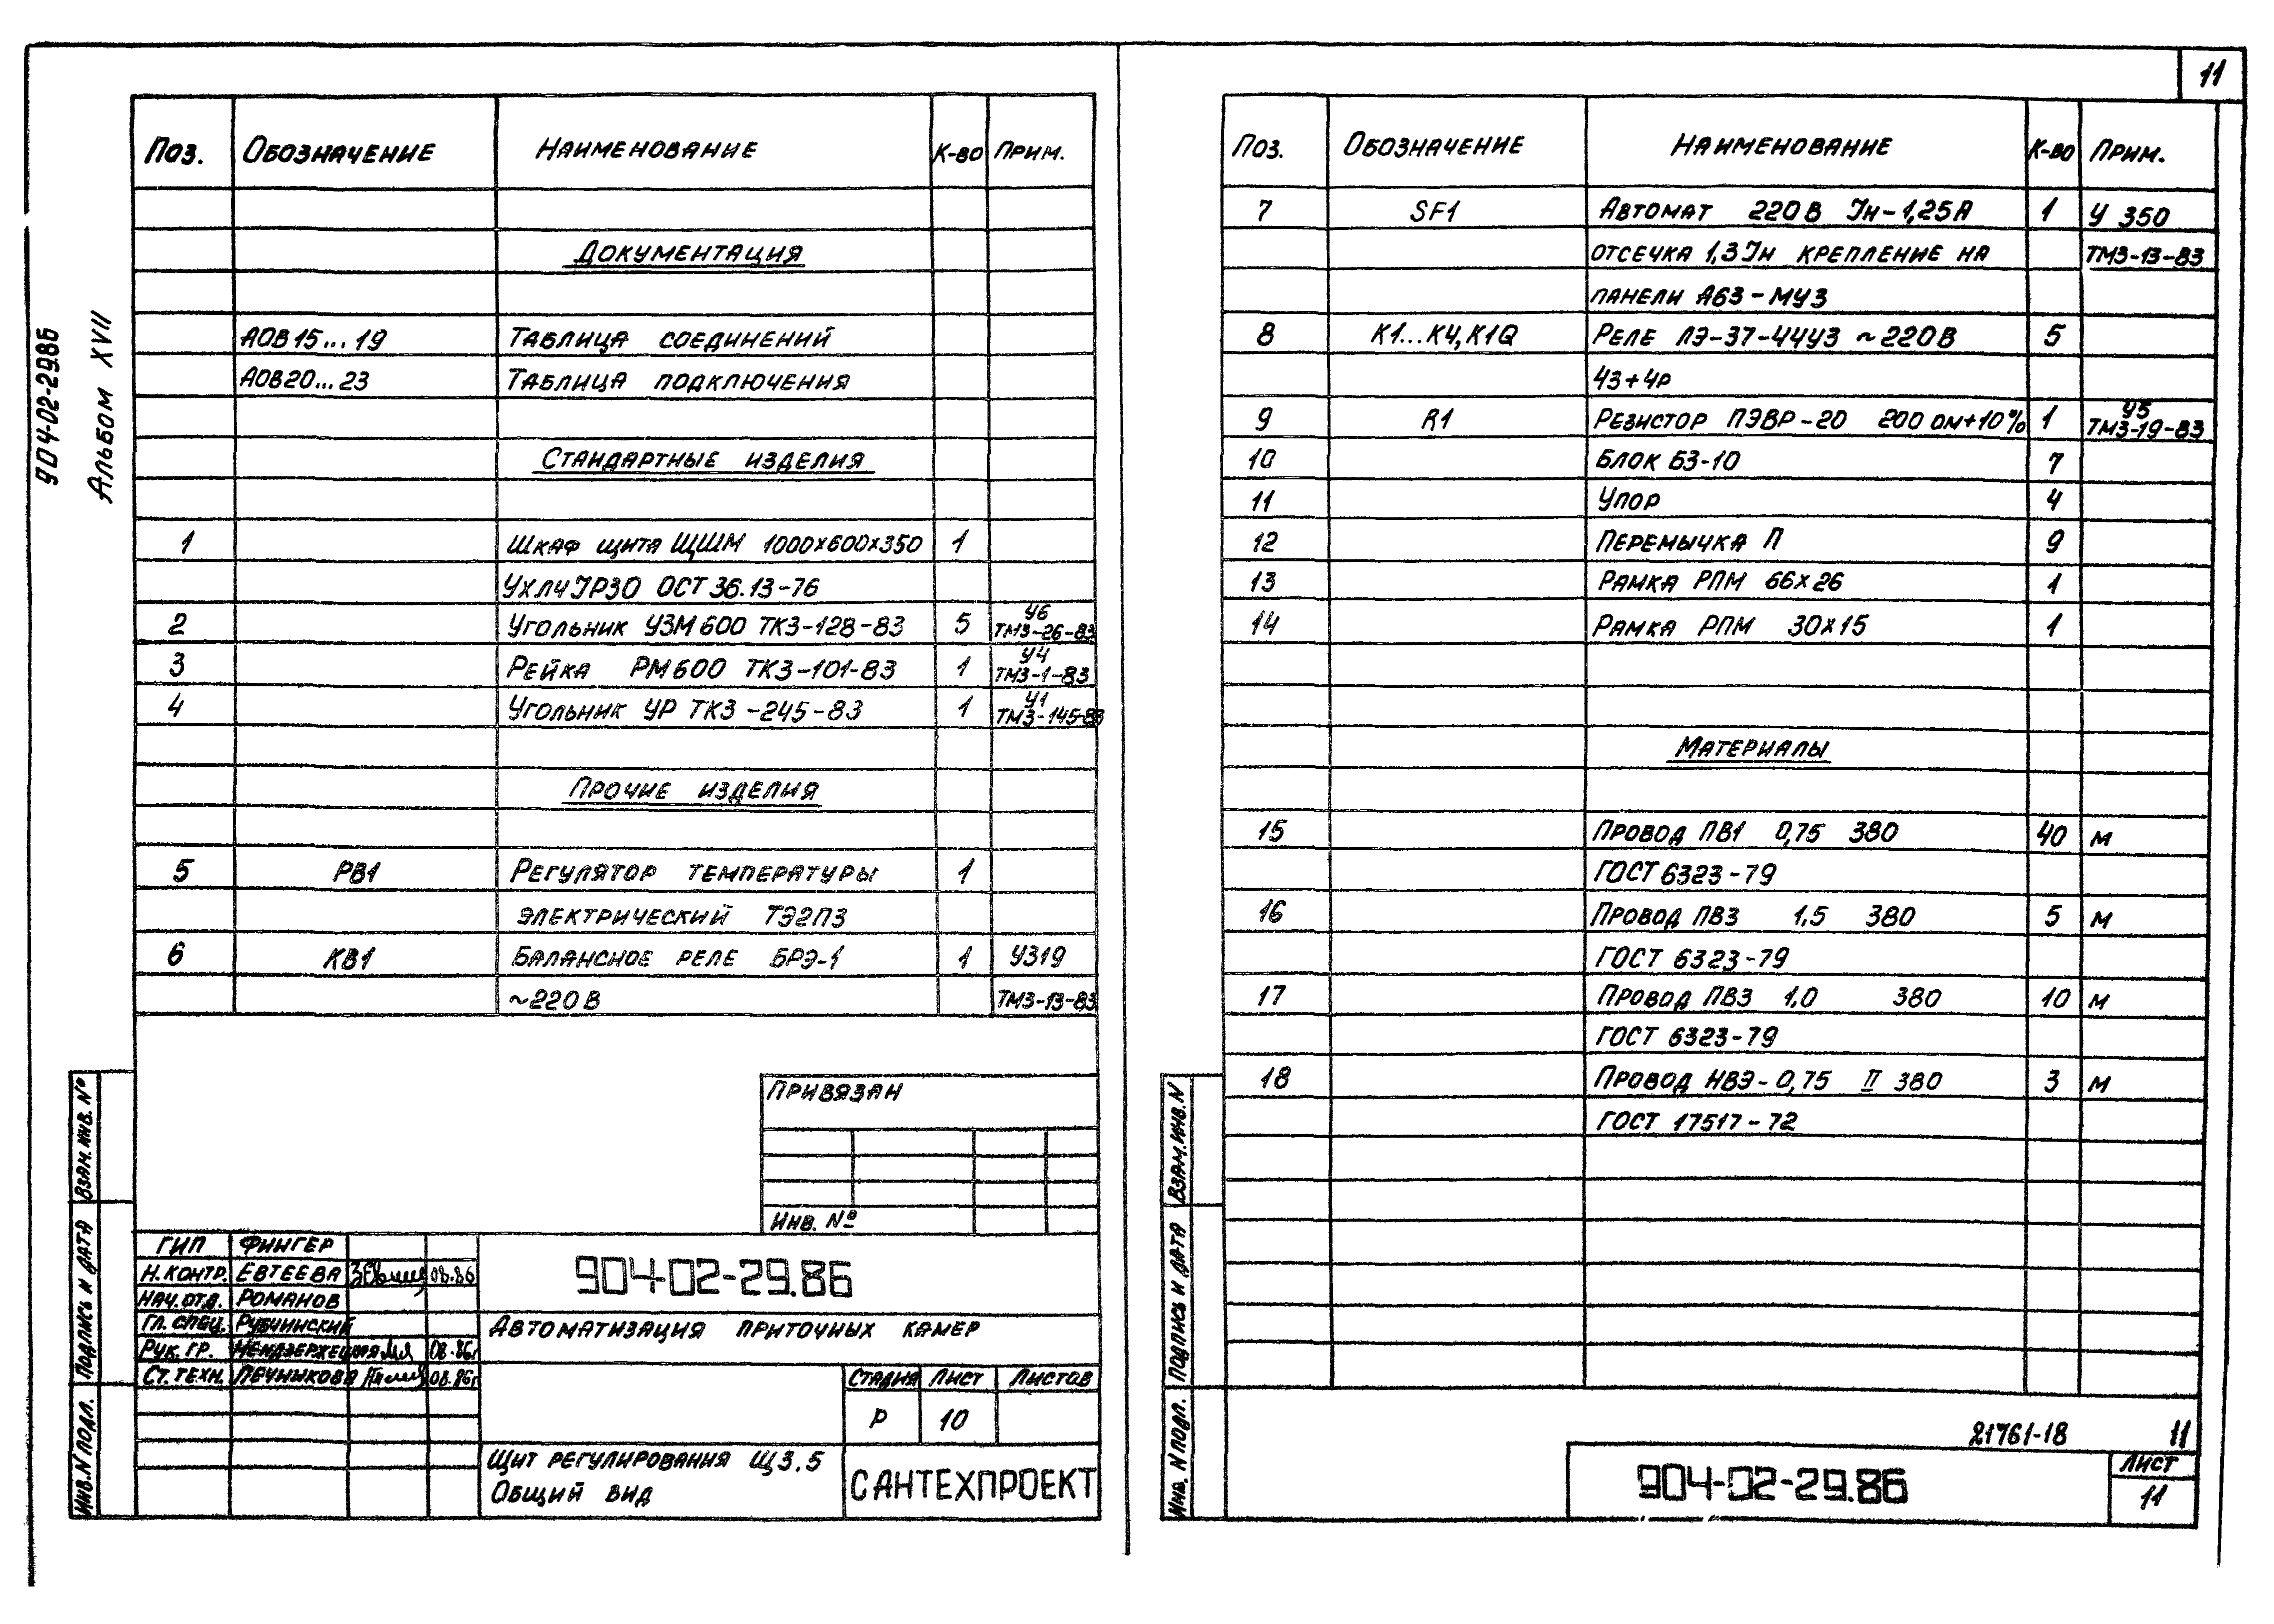 11
904-02-29.86
Альбом XVII
Поз. Обозначение Наименование К-во Прим.
Документация
АОВ15...19 Таблица соединений
АОВ20...23 Таблица подключения
Стандартные изделия
1 Шкаф щита ЩШМ 1000х600х350 1
УХЛ4 IР30 ОСТ 36.13-76
2 Угольник УЗМ600 ТК3-128-83 5 У6 ТМ3-26-83
3 Рейка РМ600 ТК3-101-83 1 У4 ТМ3-1-83
4 Угольник УР ТК3-245-83 1 У1 ТМ3-145-83
Прочие изделия
5 РВ1 Регулятор температуры 1
электрический ТЭ2П3
6 КВ1 Балансное реле БРЭ-1 1 У319
~220В ТМ3-13-83
Привязан
Инв. №
ГИП Фингер
Н.контр. Евтеева 08.86
Нач.отд. Романов
Гл. спец. Рубчинский
Рук. гр. 08.86г
Ст.техн. Печникова 08.86г
904-02-29.86
Автоматизация приточных камер
Стадия Лист Листов
Р 10
Щит регулирования Щ3.5
Общий вид
САНТЕХПРОЕКТ
Взам.инв. №
Подпись и дата
Инв.N подл.
Поз. Обозначение Наименование К-во Прим.
7 SF1 Автомат 220В Iн-1,25А 1 У 350
отсечка 1,3Iн крепление на ТМ3-13-83
панели А63-МУ3
8 К1...К4,К1Q Реле ПЭ-37-44У3 ~220В 5
4з+4р
9 R1 Резистор ПЭВР-20 200 ом+10% 1 У5 ТМ3-19-83
10 Блок БЗ-10 7
11 Упор 4
12 Перемычка П 9
13 Рамка РПМ 66х26 1
14 Рамка РПМ 30х15 1
Материалы
15 Провод ПВ1 0,75 380 40 м
ГОСТ 6323-79
16 Провод ПВ3 1,5 380 5 м
ГОСТ 6323-79
17 Провод ПВ3 1,0 380 10 м
ГОСТ 6323-79
18 Провод НВЭ-0,75 II 380 3 м
ГОСТ 17517-72
Взам.инв.N
Подпись и дата
Инв. N подл.
21761-18 11
904-02-29.86
Лист
11